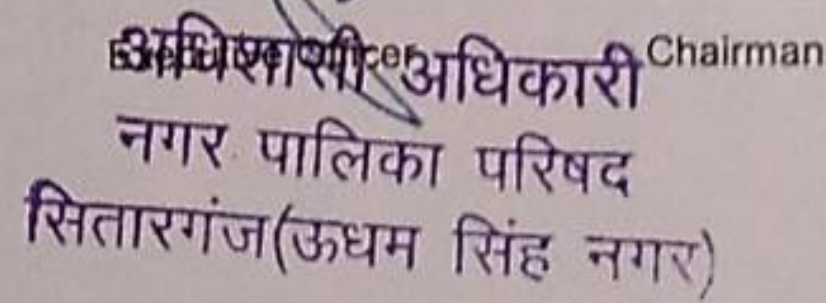 अधिशासी अधिकारी Chairman
नगर पालिका परिषद
सितारगंज(ऊधम सिंह नगर)